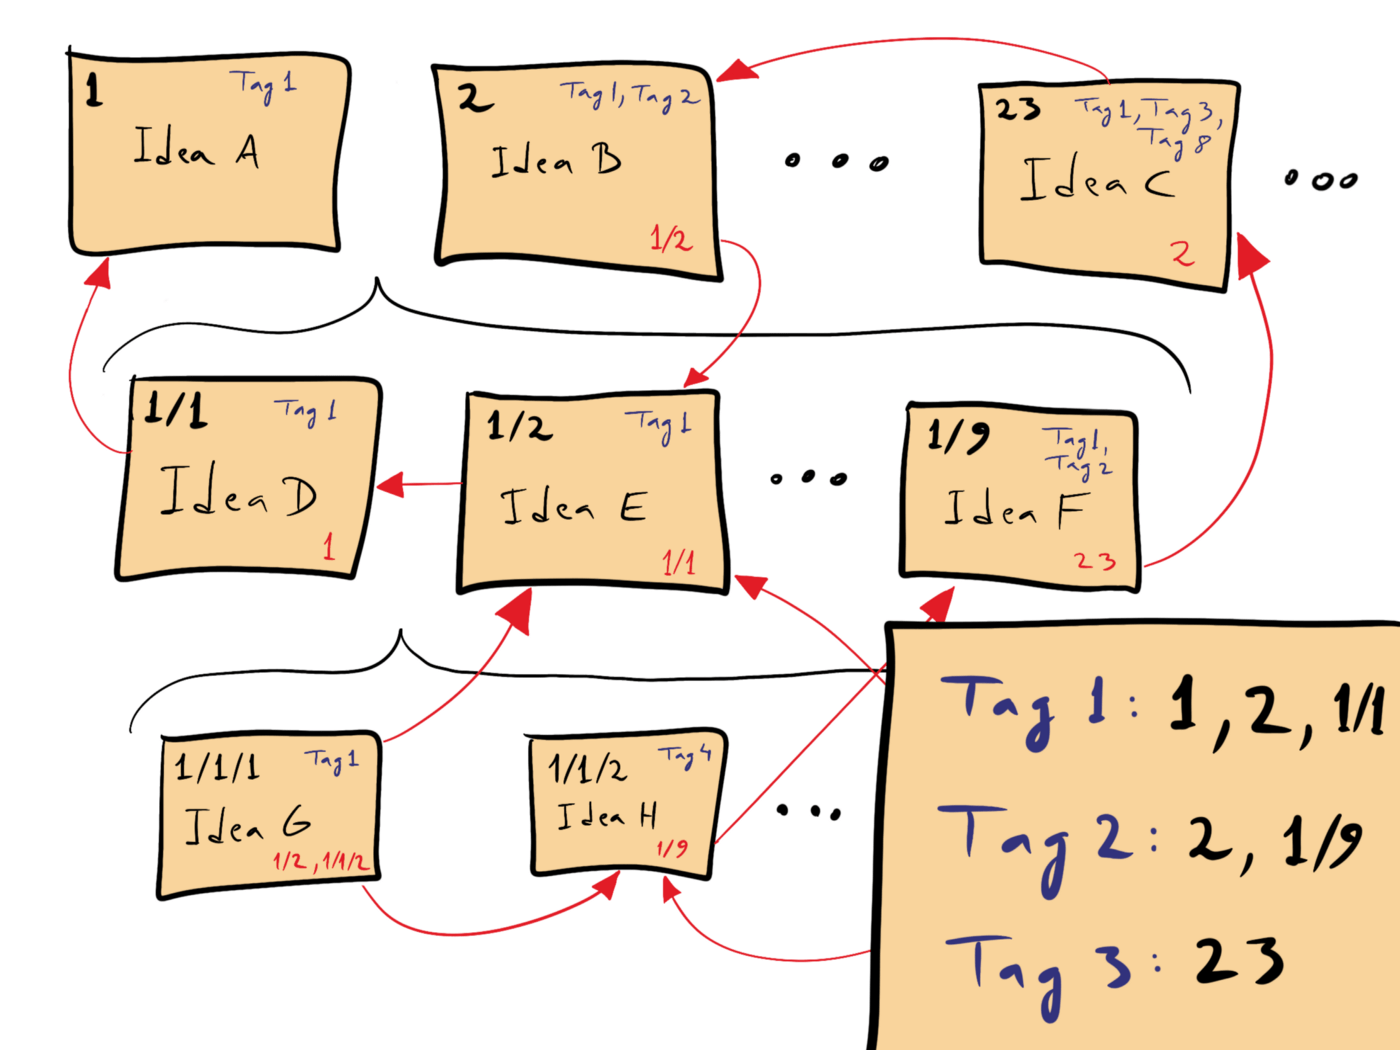 1 Tag 1
Idea A
2 Tag 1, Tag 2
Idea B
1/2
23 Tag 1, Tag 3,
Tag 8
Idea C
2
1/1 Tag 1
Idea D
1
1/2 Tag 1
Idea E
1/1
1/9 Tag 1,
Tag 2
Idea F
23
1/1/1 Tag 1
Idea G
1/2, 1/1/2
1/1/2 Tag 4
Idea H
1/9
Tag 1: 1, 2, 1/1
Tag 2: 2, 1/9
Tag 3: 23